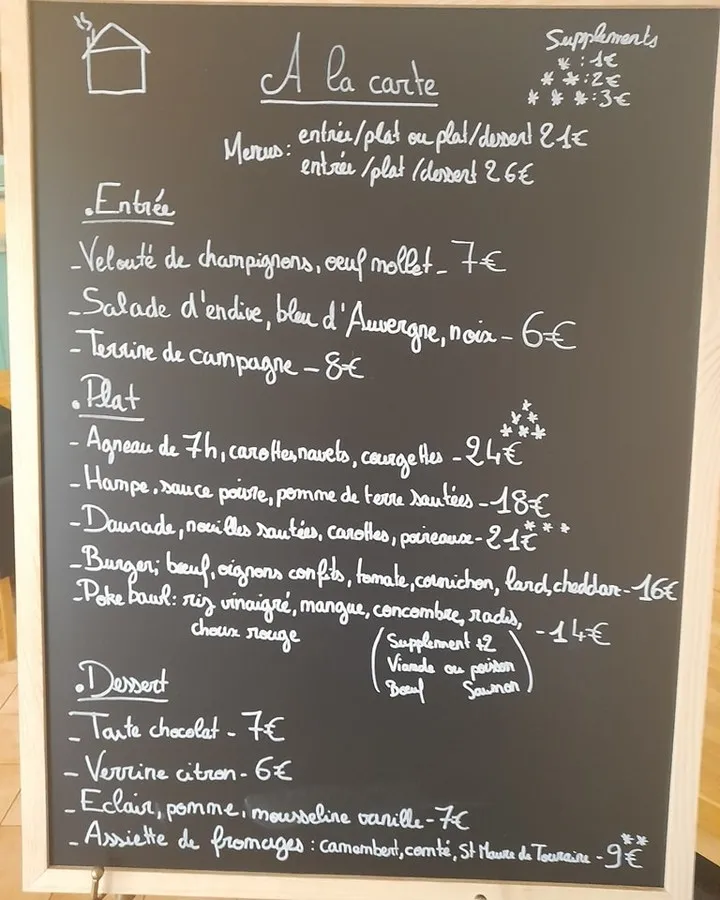 A la carte
Suppléments
* : 1€
* * : 2€
* * * : 3€
Menus : entrée/plat ou plat/dessert 21€
entrée/plat/dessert 26€
. Entrée
- Velouté de champignons, oeuf mollet - 7€
- Salade d'endive, bleu d'Auvergne, noix - 6€
- Terrine de campagne - 8€
. Plat
*
* *
* * *
- Agneau de 7h, carottes, navets, courgettes - 24€
- Hampe, sauce poivre, pomme de terre sautées - 18€
- Daurade, nouilles sautées, carottes, poireaux - 21€ * * *
- Burger; bœuf, oignons confits, tomate, cornichon, lard, cheddar - 16€
- Poke bawl : riz vinaigré, mangue, concombre, radis,
choux rouge - 14€
(Supplément +2
Viande ou poisson
Bœuf Saumon)
. Dessert
- Tarte chocolat - 7€
- Verrine citron - 6€
- Eclair, pomme, mousseline vanille - 7€
- Assiette de fromages : camembert, comté, St Maure de Touraine - 9€ * *